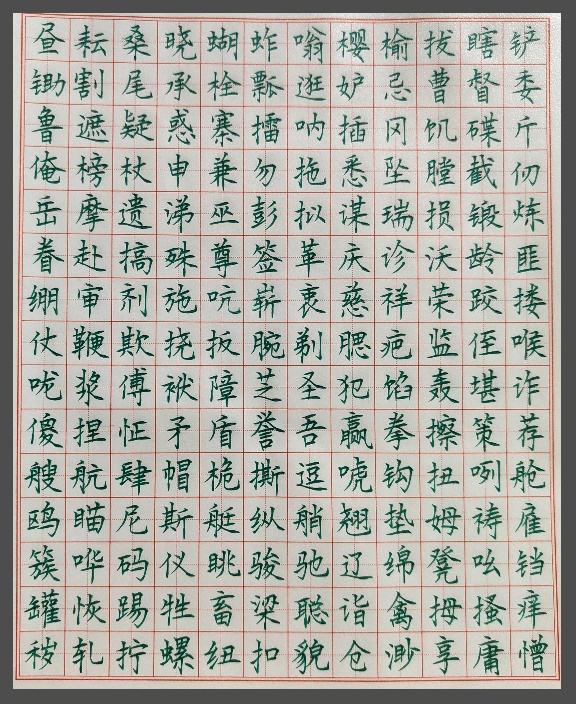 昼耘桑晓蝴蚱嗡樱榆拔瞎铲
锄割尾承栓瓢逛妒忌曹督委
鲁遮疑惑寨擂呐插冈饥碟斤
俺榜杖申兼勿拖悉坠膛截仞
岳摩遗涕巫彭拟谋瑞损锻炼
眷赴搞殊尊签革庆诊沃龄匪
绷审剂施吭崭衷慈祥荣跤搂
仗鞭欺挠扳腕剃腮疤监侄喉
咙浆傅袱障芝圣犯馅轰堪诈
傻捏怔矛盾誉吾赢拳擦策荐
艘航肆帽桅撕逗唬钩扭咧舱
鸥瞄尼斯艇纵艄翘垫姆祷雇
簇哗码仪眺骏驰辽绵凳吆铛
罐恢踢牲畜梁聪诣禽拇搔痒
秽轧拧螺纽扣貌仓渺享庸憎